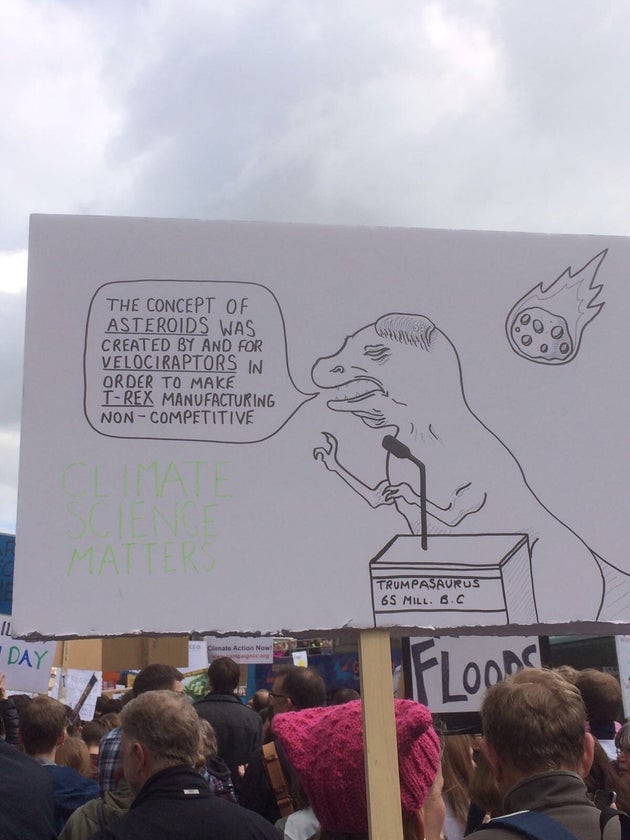 THE CONCEPT OF
ASTEROIDS WAS
CREATED BY AND FOR
VELOCIRAPTORS IN
ORDER TO MAKE
T-REX MANUFACTURING
NON-COMPETITIVE
CLIMATE
SCIENCE
MATTERS
TRUMPASAURUS
65 MILL. B.C
DAY
Climate Action Now!
FLOODS